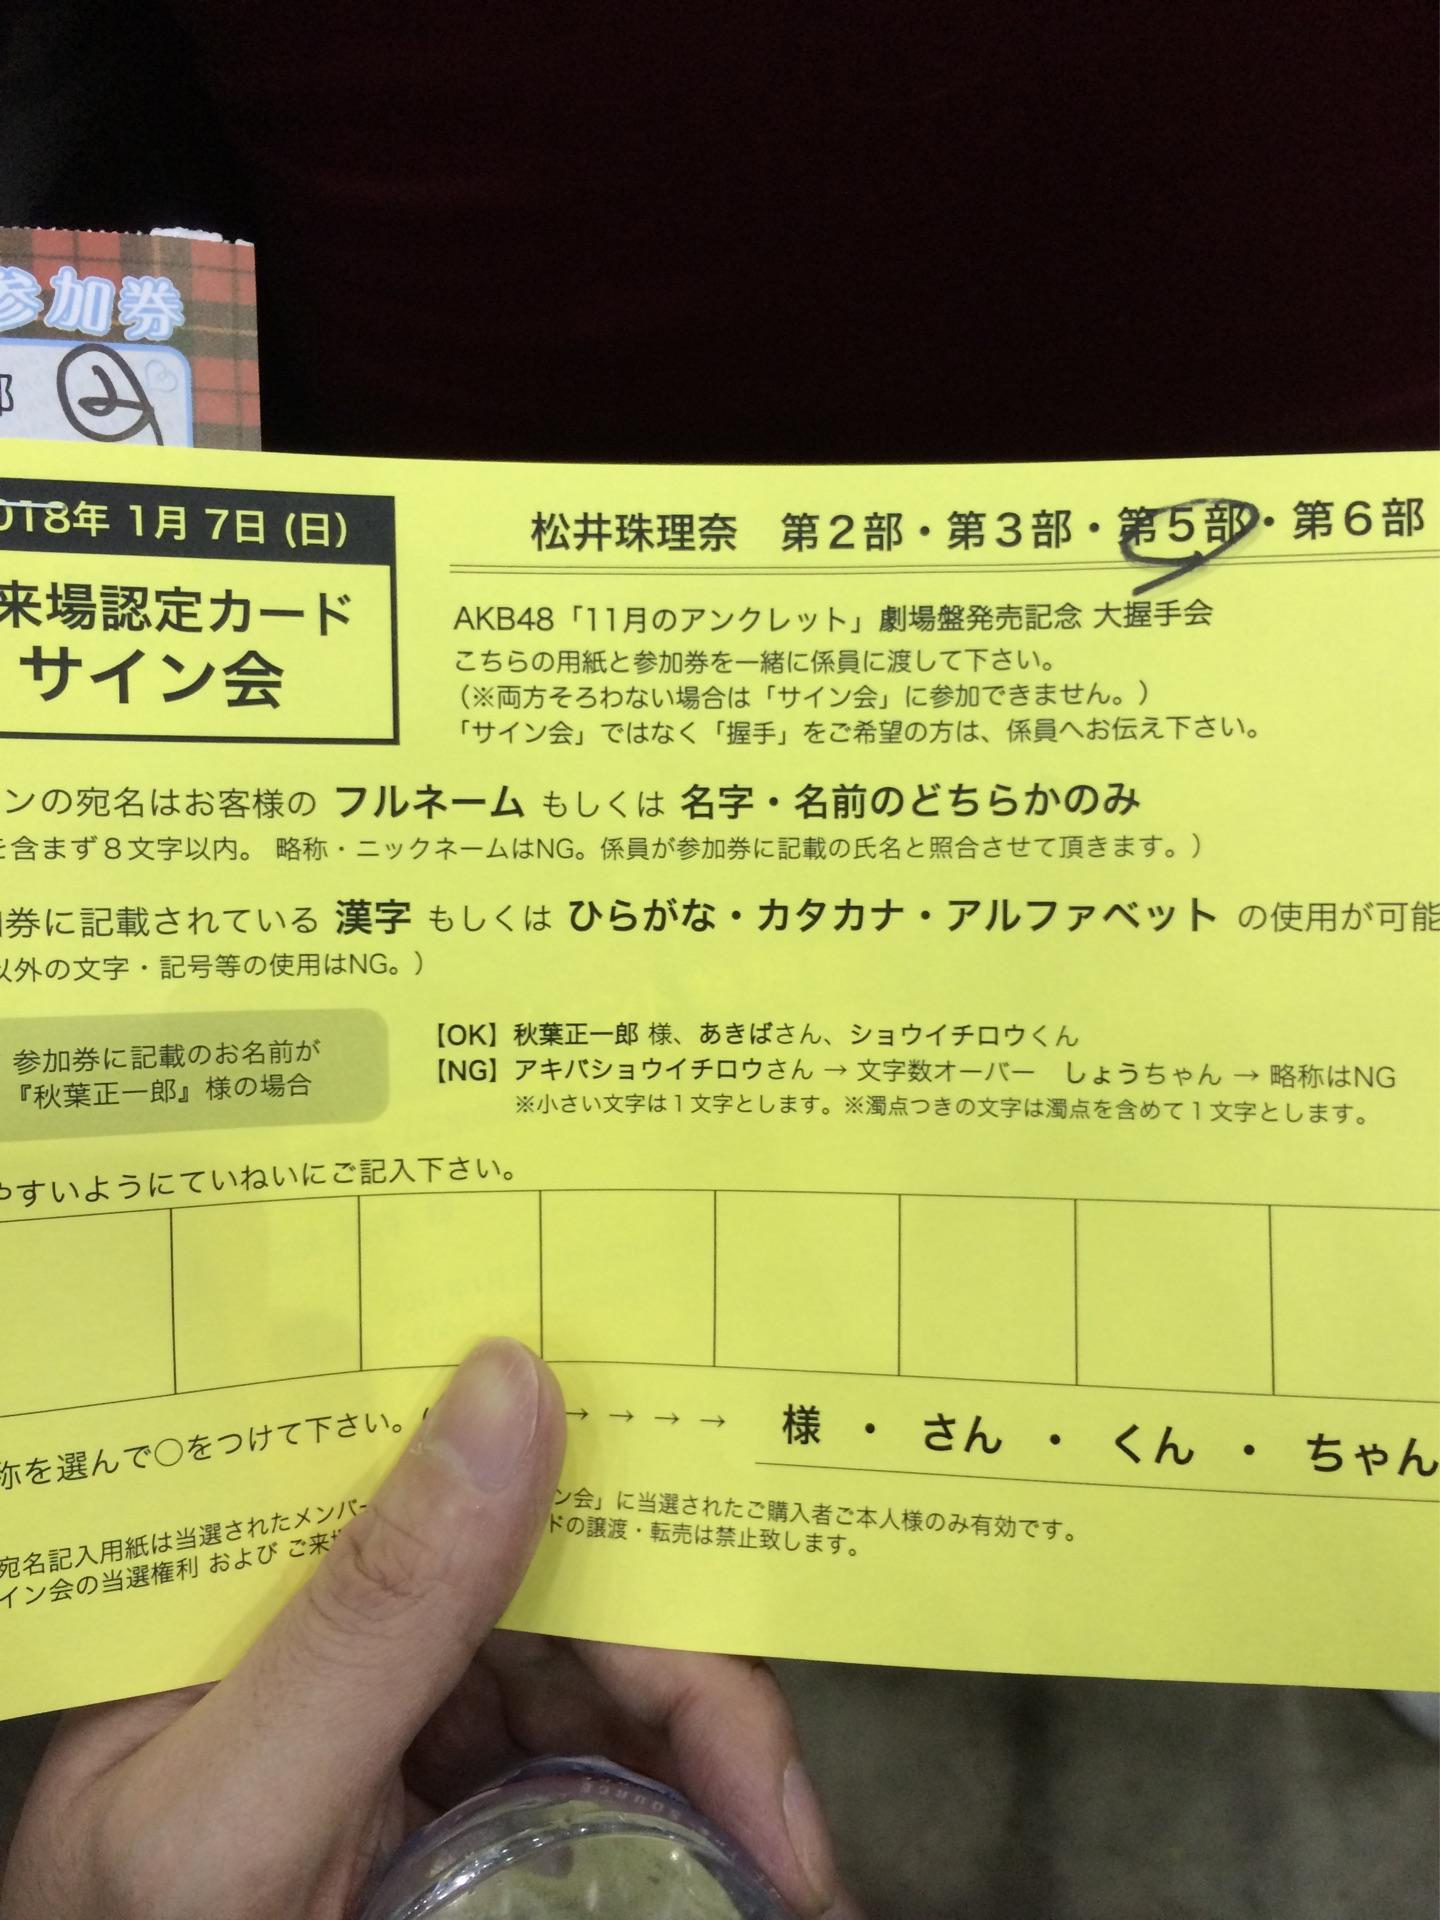 参加券
部
2018年 1月 7日 (日)
来場認定カード
サイン会
松井珠理奈 第2部・第3部・第5部・第6部
AKB48「11月のアンクレット」劇場盤発売記念 大握手会
こちらの用紙と参加券を一緒に係員に渡して下さい。
（※両方そろわない場合は「サイン会」に参加できません。）
「サイン会」ではなく「握手」をご希望の方は、係員へお伝え下さい。
ンの宛名はお客様の フルネーム もしくは 名字・名前のどちらかのみ
を含まず8文字以内。 略称・ニックネームはNG。係員が参加券に記載の氏名と照合させて頂きます。）
加券に記載されている 漢字 もしくは ひらがな・カタカナ・アルファベット の使用が可能
以外の文字・記号等の使用はNG。）
参加券に記載のお名前が
『秋葉正一郎』様の場合
【OK】秋葉正一郎 様、あきばさん、ショウイチロウくん
【NG】アキバショウイチロウさん → 文字数オーバー しょうちゃん → 略称はNG
※小さい文字は1文字とします。※濁点つきの文字は濁点を含めて1文字とします。
やすいようにていねいにご記入下さい。
称を選んで○をつけて下さい。 → → → → 様 ・ さん ・ くん ・ ちゃん
宛名記入用紙は当選されたメンバー ン会」に当選されたご購入者ご本人様のみ有効です。
イン会の当選権利 および ご来場 ドの譲渡・転売は禁止致します。
SOURCE